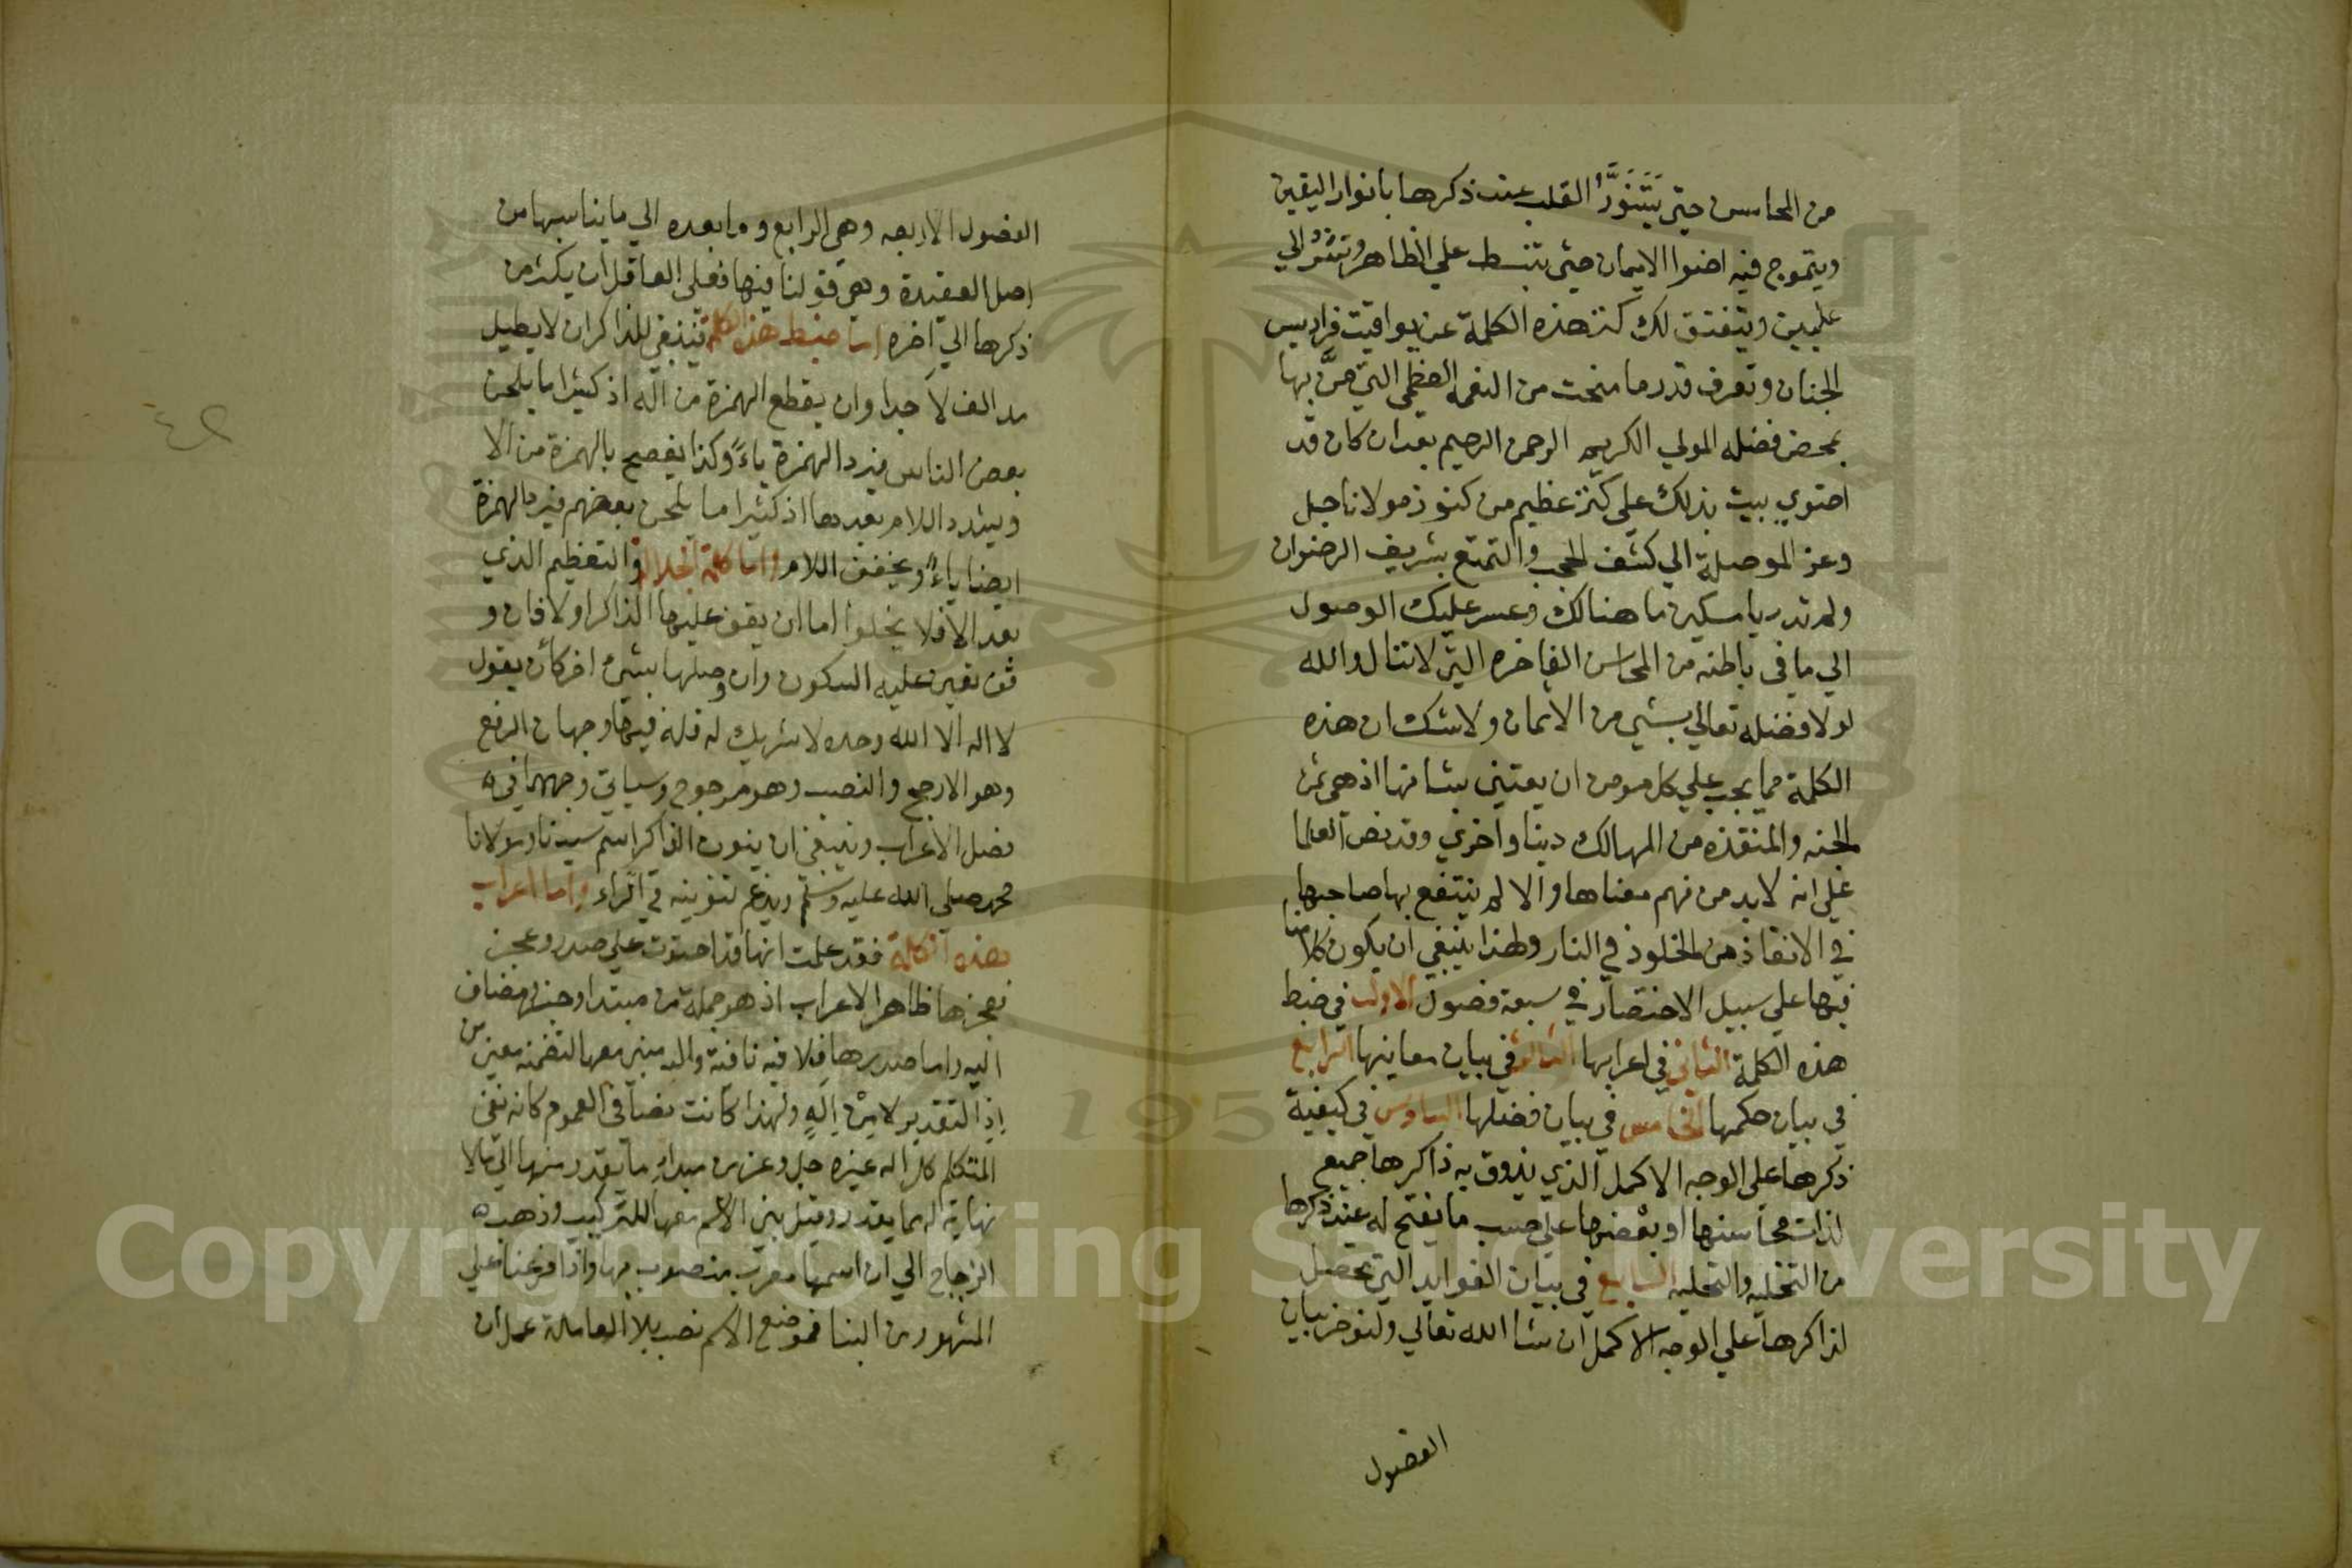 من المحاسن حتى يَتَنَوَّرَ القلب عند ذكرها بانوار اليقين
ويتموج فيه اضوا الايمان حتى تنبسط علي الظاهر وتنثر الي
عليين ويتفتق لك كنز هذه الكلمة عن يواقيت فراديس
الجنان وتعرف قدر ما منحت من النعمة العظمى التي منَّ بها
بمحض فضله المولي الكريم الرحمن الرحيم بعد ان كان قد
احتوي بيت بذلك علي كنز عظيم من كنوز مولانا جل
وعز الموصلة الي كشف الحجب والتمتع بشريف الرضوان
ولم تدر يا مسكين ما هنالك وعسر عليك الوصول
الي ما في باطنه من المحاسن الفاخره التي لا تنال والله
لولا فضله تعالي بشي من الاثمان ولا شك ان هذه
الكلمة مما يجب علي كل مومن ان يعتني بشانها اذ هي ثمن
الجنه والمنقذه من المهالك دينا واخري وقد نص العلما
علي انه لا بد من فهم معناها والا لم ينتفع بها صاحبها
في الانقاذ من الخلود في النار ولهذا ينبغي ان يكون كلامنا
فيها علي سبيل الاختصار في سبعة فصول الاول في ضبط
هذه الكلمة الثاني في اعرابها الثالث في بيان معانيها الرابع
في بيان حكمها الخامس في بيان فضلها السادس في كيفية
ذكرها علي الوجه الاكمل الذي يذوق به ذاكرها جميع
لذات محاسنها او بعضها علي حسب ما يفتح له عند ذكرها
من التخليه والتحليه السابع في بيان الفوايد التي تحصل
لذاكرها علي الوجه الاكمل ان شا الله تعالي ولنوخر بيان
الفصول
الفصول الاربعه وهي الرابع وما بعده الي ما يناسبها من
اصل العقيدة وهي قولنا فيها فعلى العاقل ان يكثر من
ذكرها الي اخره اما ضبط هذه الكلمة فينبغي للذاكر ان لا يطيل
مد الف لا جدا وان يقطع الهمزة من اله اذ كثيرا ما يلحن
بعض الناس فيرد الهمزة ياءً وكذا يفصح بالهمزة من الا
ويشدد اللام بعدها اذ كثيرا ما يلحن بعضهم فيرد الهمزة
ايضا ياءً ويخفف اللام واما كلمة الجلاله والتعظيم الذي
بعد الا فلا يخلوا اما ان يقف عليها الذاكر اولا فان و
قف تعين عليه السكون وان وصلها بشئ اخر كأن يقول
لا اله الا الله وحده لا شريك له فله فيها وجهان الرفع
وهو الارجح والنصب وهو مرجوح وسياتي وجههما في
فصل الاعراب وينبغي ان ينون الذاكر اسم سيدنا ومولانا
محمد صلى الله عليه وسلم ويدغم تنوينه في الراء واما اعراب
هذه الكلمة فقد علمت انها قد احتوت علي صدر وعجز
فعجزها ظاهر الاعراب اذ هو جملة من مبتدا وخبر ومضاف
اليه واما صدرها فلا فيه نافية واله مبني معها لتضمنه معنى من
إذ التقدير لا من إلهٍ ولهذا كانت نصا في العموم كانه نفى
المتكلم كل اله غيره جل وعز من مبداءِ ما يقدر منها الي ما لا
نهاية له مما يقدر وقيل بني الاسم معها للتركيب وذهب
الزجاج الي ان اسمها معرب منصوب بها واذا فرعنا علي
المشهور من البنا فموضع الاسم نصب بلا العاملة عمل ان